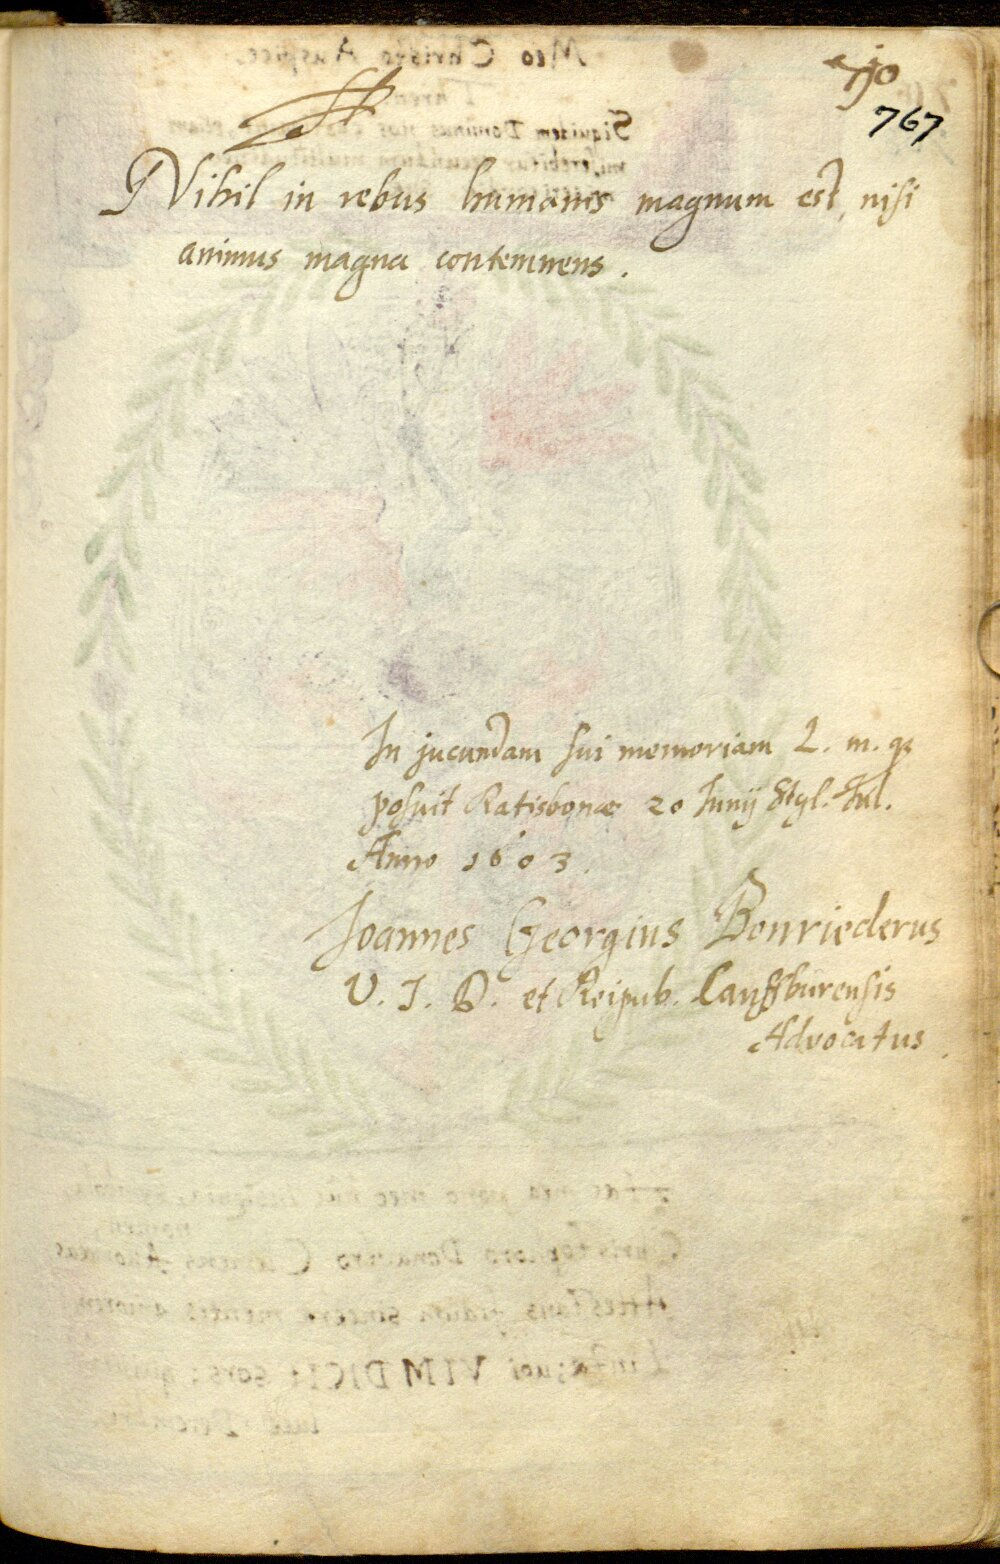 767
Nihil in rebus humanis magnum est, nisi
animus magna contemnens.
In jucundam sui memoriam L. m. q₃
posuit Ratisbonae 20 Junij Styl. Jul.
Anno 1603.
Joannes Georgius Bonriederus
V. I. D. et Reipub. Cauffburensis
Advocatus.